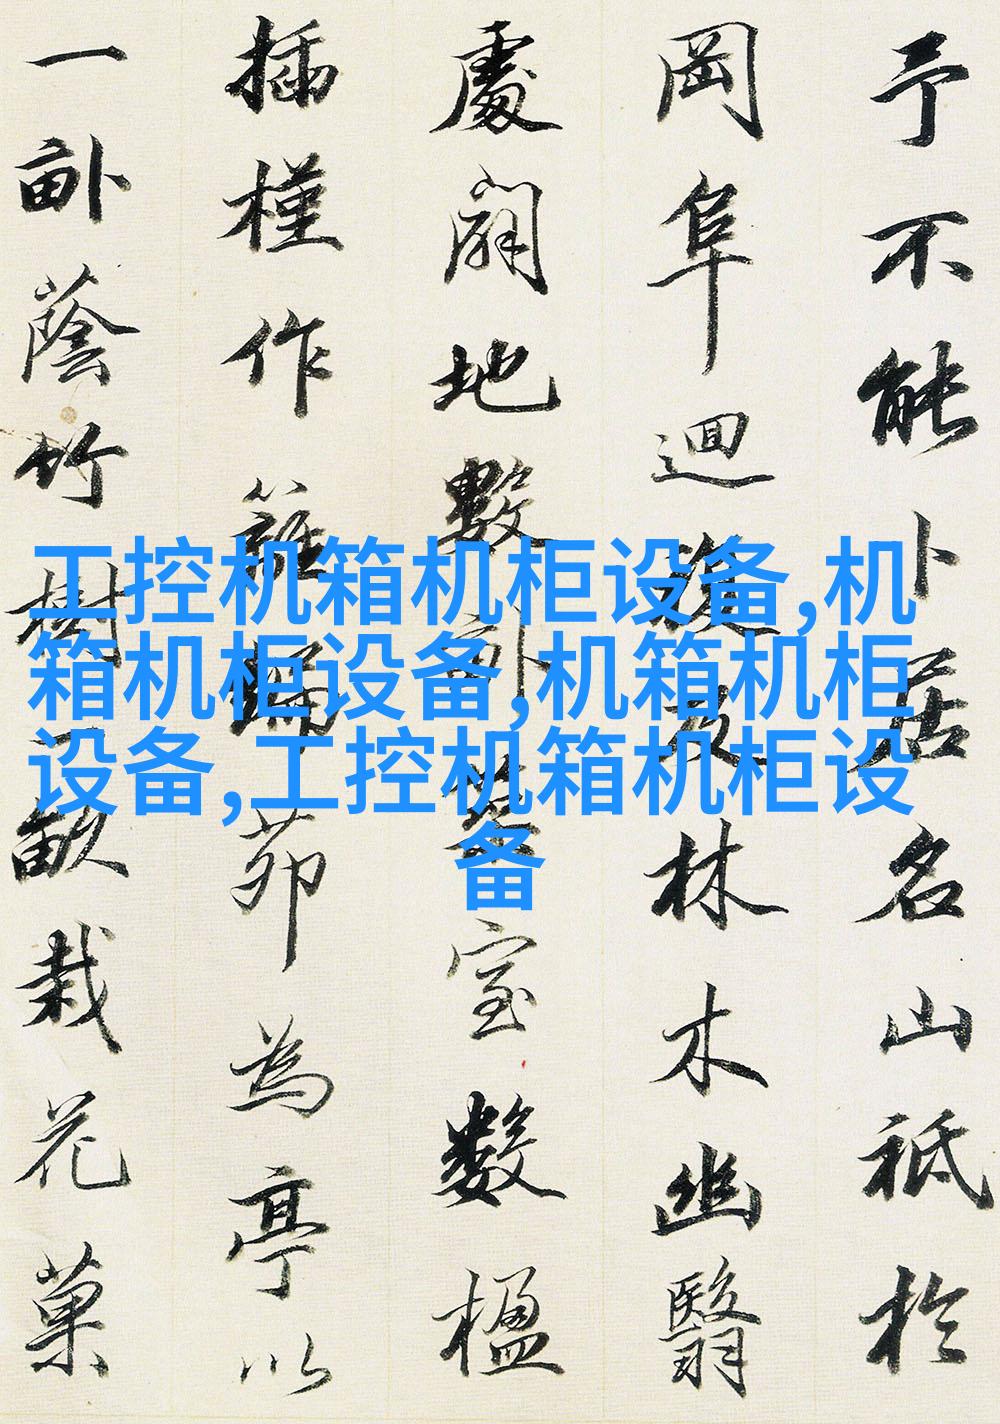 予不能卜居名山祗於
岡阜迴複及林木幽翳
處闢地數畝築室數楹
插槿作籬編茆為亭以
一畝蔭竹樹一畝栽花菓
工控机箱机柜设备,机
箱机柜设备,机箱机柜
设备,工控机箱机柜设
备